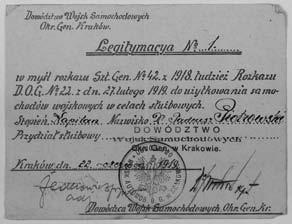 Dowództwo Wojsk Samochodowych
Okr. Gen. Kraków.
Legitymacya № 1.
w myśl rozkazu Szt. Gen. № 42. z 1918. tudzież Rozkazu
D.O.G. № 22. z dn. 27. lutego 1919. do użytkowania samo-
chodów wojskowych w celach służbowych.
Stopień Kapitan Nazwisko R. Tadeusz
Przydział służbowy
DOWÓDZTWO
Wojsk Samochodowych
Okr. Gen. w Krakowie.
Kraków, dn. 22 1919
Dowódzca Wojsk Samochodowych Okr. Gen. Kr.